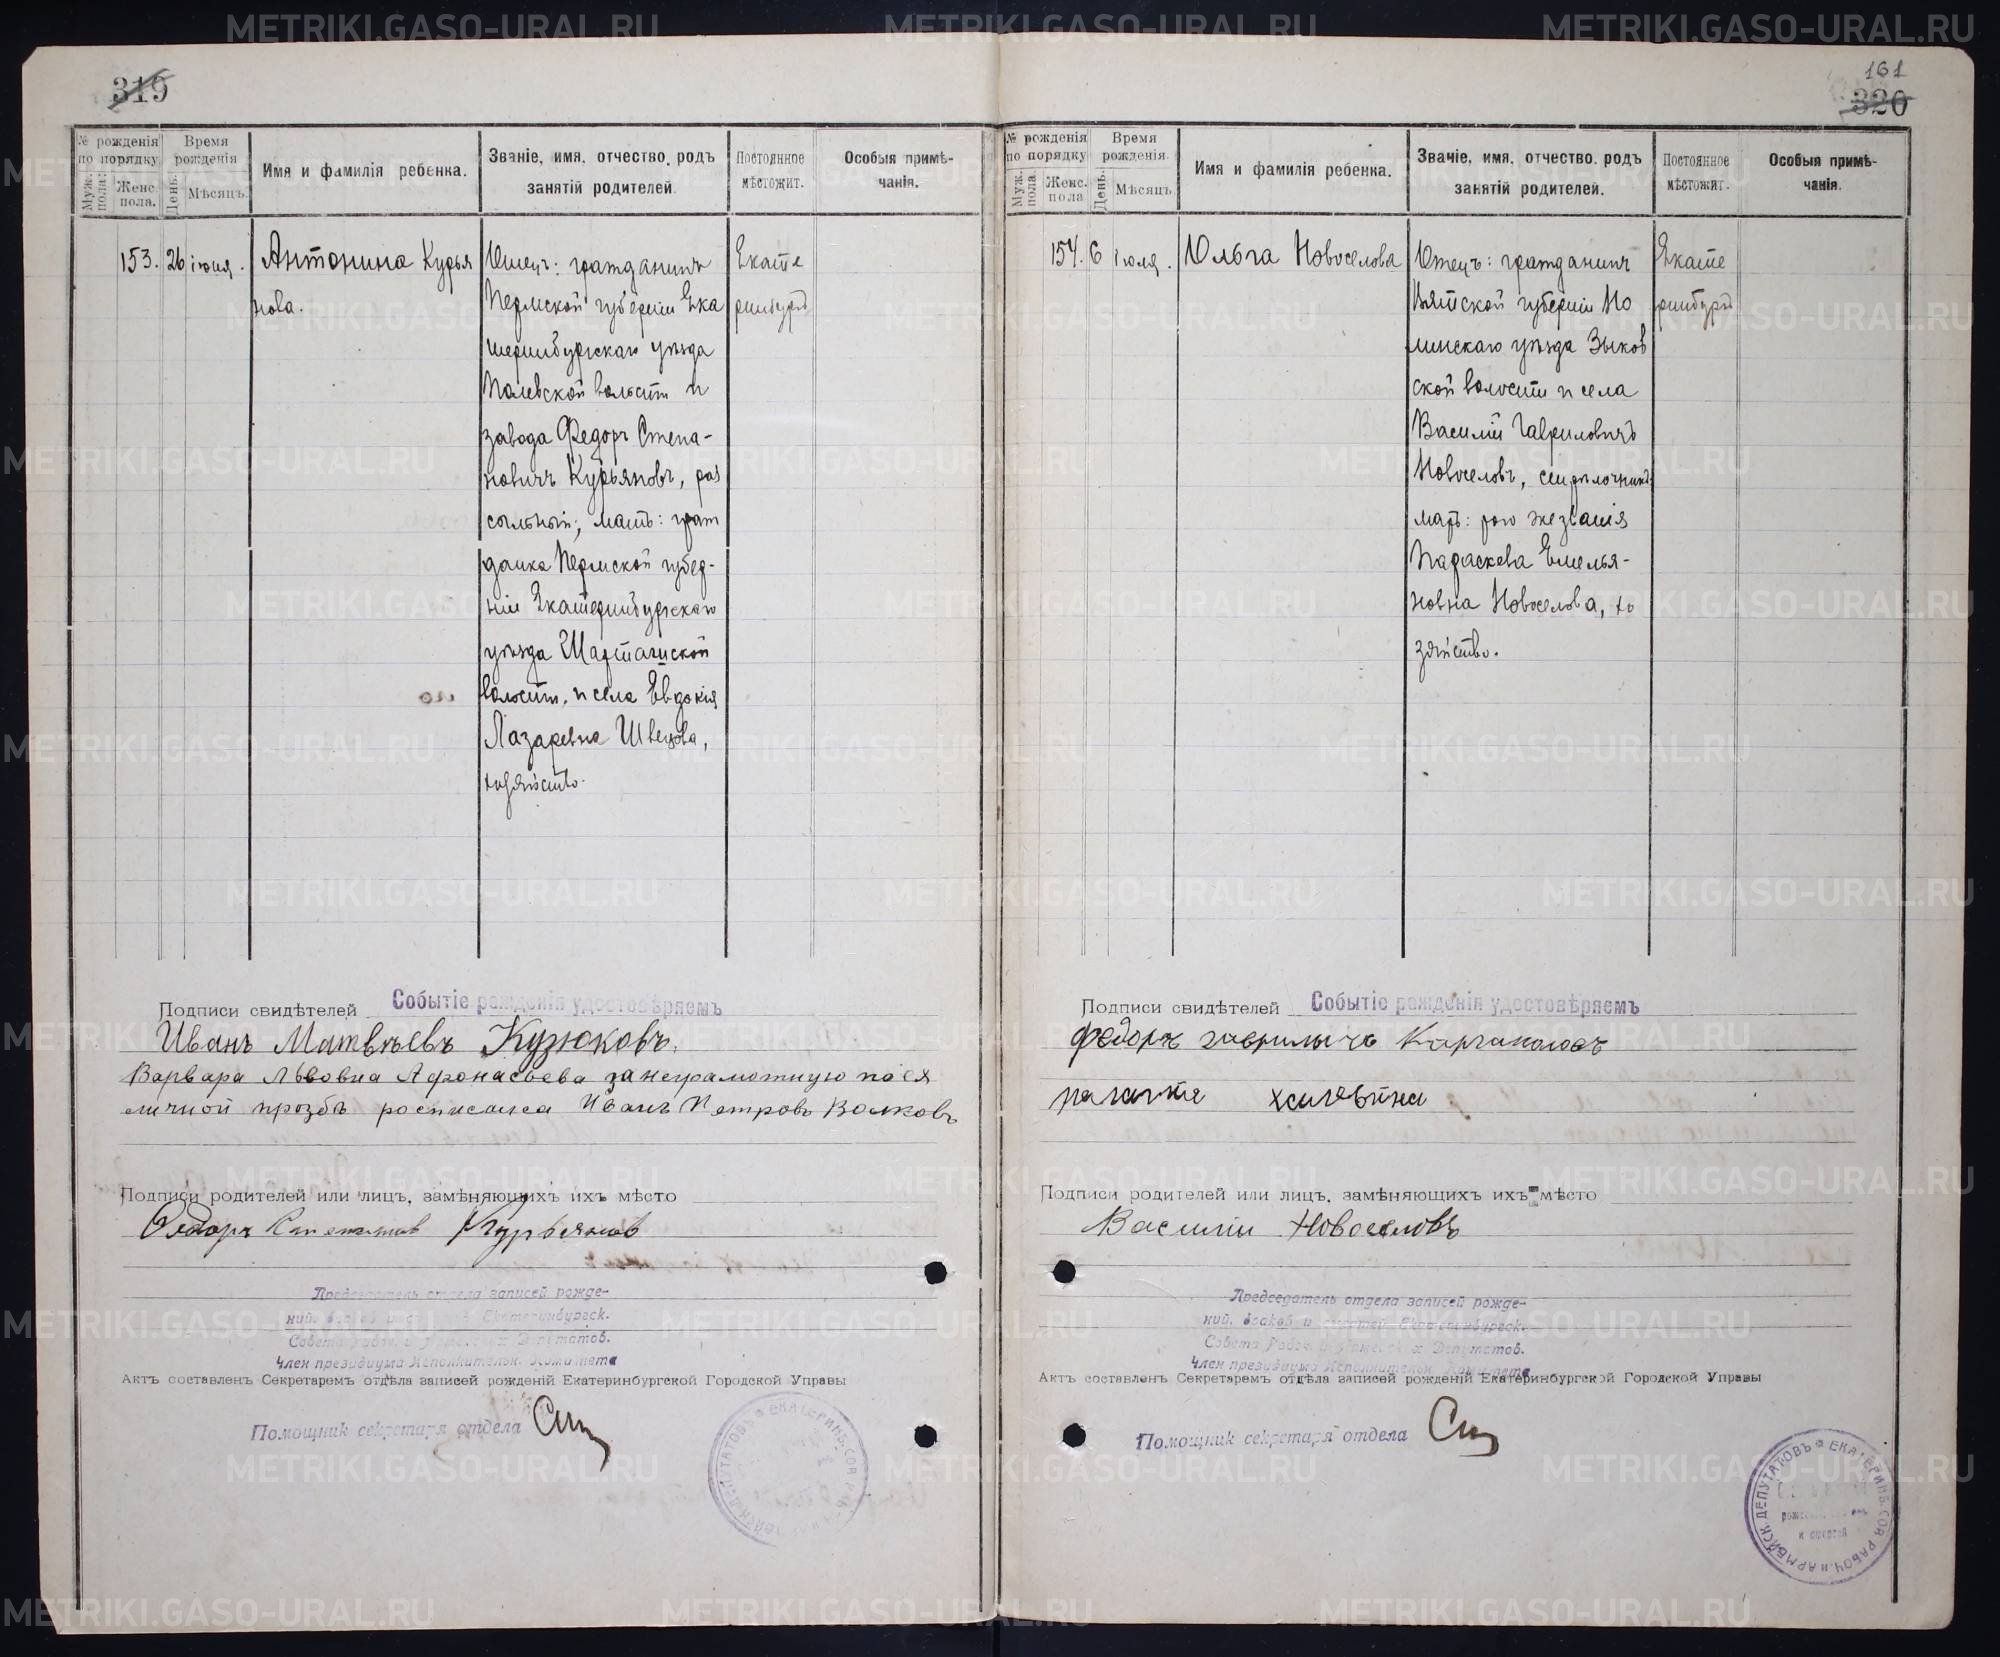 319
№ рожденія по порядку
Муж. пола.
Женс. пола.
Время рожденія
День.
Мѣсяцъ.
Имя и фамилія ребенка.
Званіе, имя, отчество, родъ занятій родителей.
Постоянное мѣстожит.
Особыя примѣчанія.
153.
26
іюня.
Антонина Курья
нова.
Отецъ: гражданинъ
Пермской губерніи Ека
теринбургскаго уѣзда
Полевской волости и
завода Федоръ Степа-
новичъ Курьяновъ, раз
сыльный; мать: граж
данка Пермской губер-
ніи Екатеринбургскаго
уѣзда Шарташской
волости и села Евдокія
Лазаревна Швецова,
хозяйство.
Екате
ринбургъ
Подписи свидѣтелей
Событіе рожденія удостовѣряемъ
Иванъ Матвѣевъ Кузюковъ.
Варвара Львовна Афонасьева за неграмотную по ея
личной прозбѣ росписался Иванъ Петровъ Волковъ
Подписи родителей или лицъ, замѣняющихъ ихъ мѣсто
Федоръ Курьянов
Председатель отдела записей рожде-
ний, браков и смертей Екатеринбургск.
Совета Рабоч. и Армейских Депутатов.
Член президиума Исполнительн. Комитета
Актъ составленъ Секретаремъ отдѣла записей рожденій Екатеринбургской Городской Управы
Помощник секретаря отдела
161
320
№ рожденія по порядку
Муж. пола.
Женс. пола
Время рожденія.
День.
Мѣсяцъ.
Имя и фамилія ребенка.
Званіе, имя, отчество, родъ занятій родителей.
Постоянное мѣстожит.
Особыя примѣчанія.
154.
6
іюля.
Ольга Новоселова
Отецъ: гражданинъ
Вятской губерніи Но
линскаго уѣзда Зыков
ской волости и села
Василій Гавриловичъ
Новоселовъ, стрѣлочникъ
мать: того же званія
Параскева Емелья-
новна Новоселова, хо
зяйство.
Екате
ринбургъ
Подписи свидѣтелей
Событіе рожденія удостовѣряемъ
Федоръ Каргаполовъ
Подписи родителей или лицъ, замѣняющихъ ихъ мѣсто
Василіи Новоселовъ
Председатель отдела записей рожде-
ний, браков и смертей Екатеринбургск.
Совета Рабоч. и Армейских Депутатов.
Член президиума Исполнительн. Комитета
Актъ составленъ Секретаремъ отдѣла записей рожденій Екатеринбургской Городской Управы
Помощник секретаря отдела
METRIKI.GASO-URAL.RU